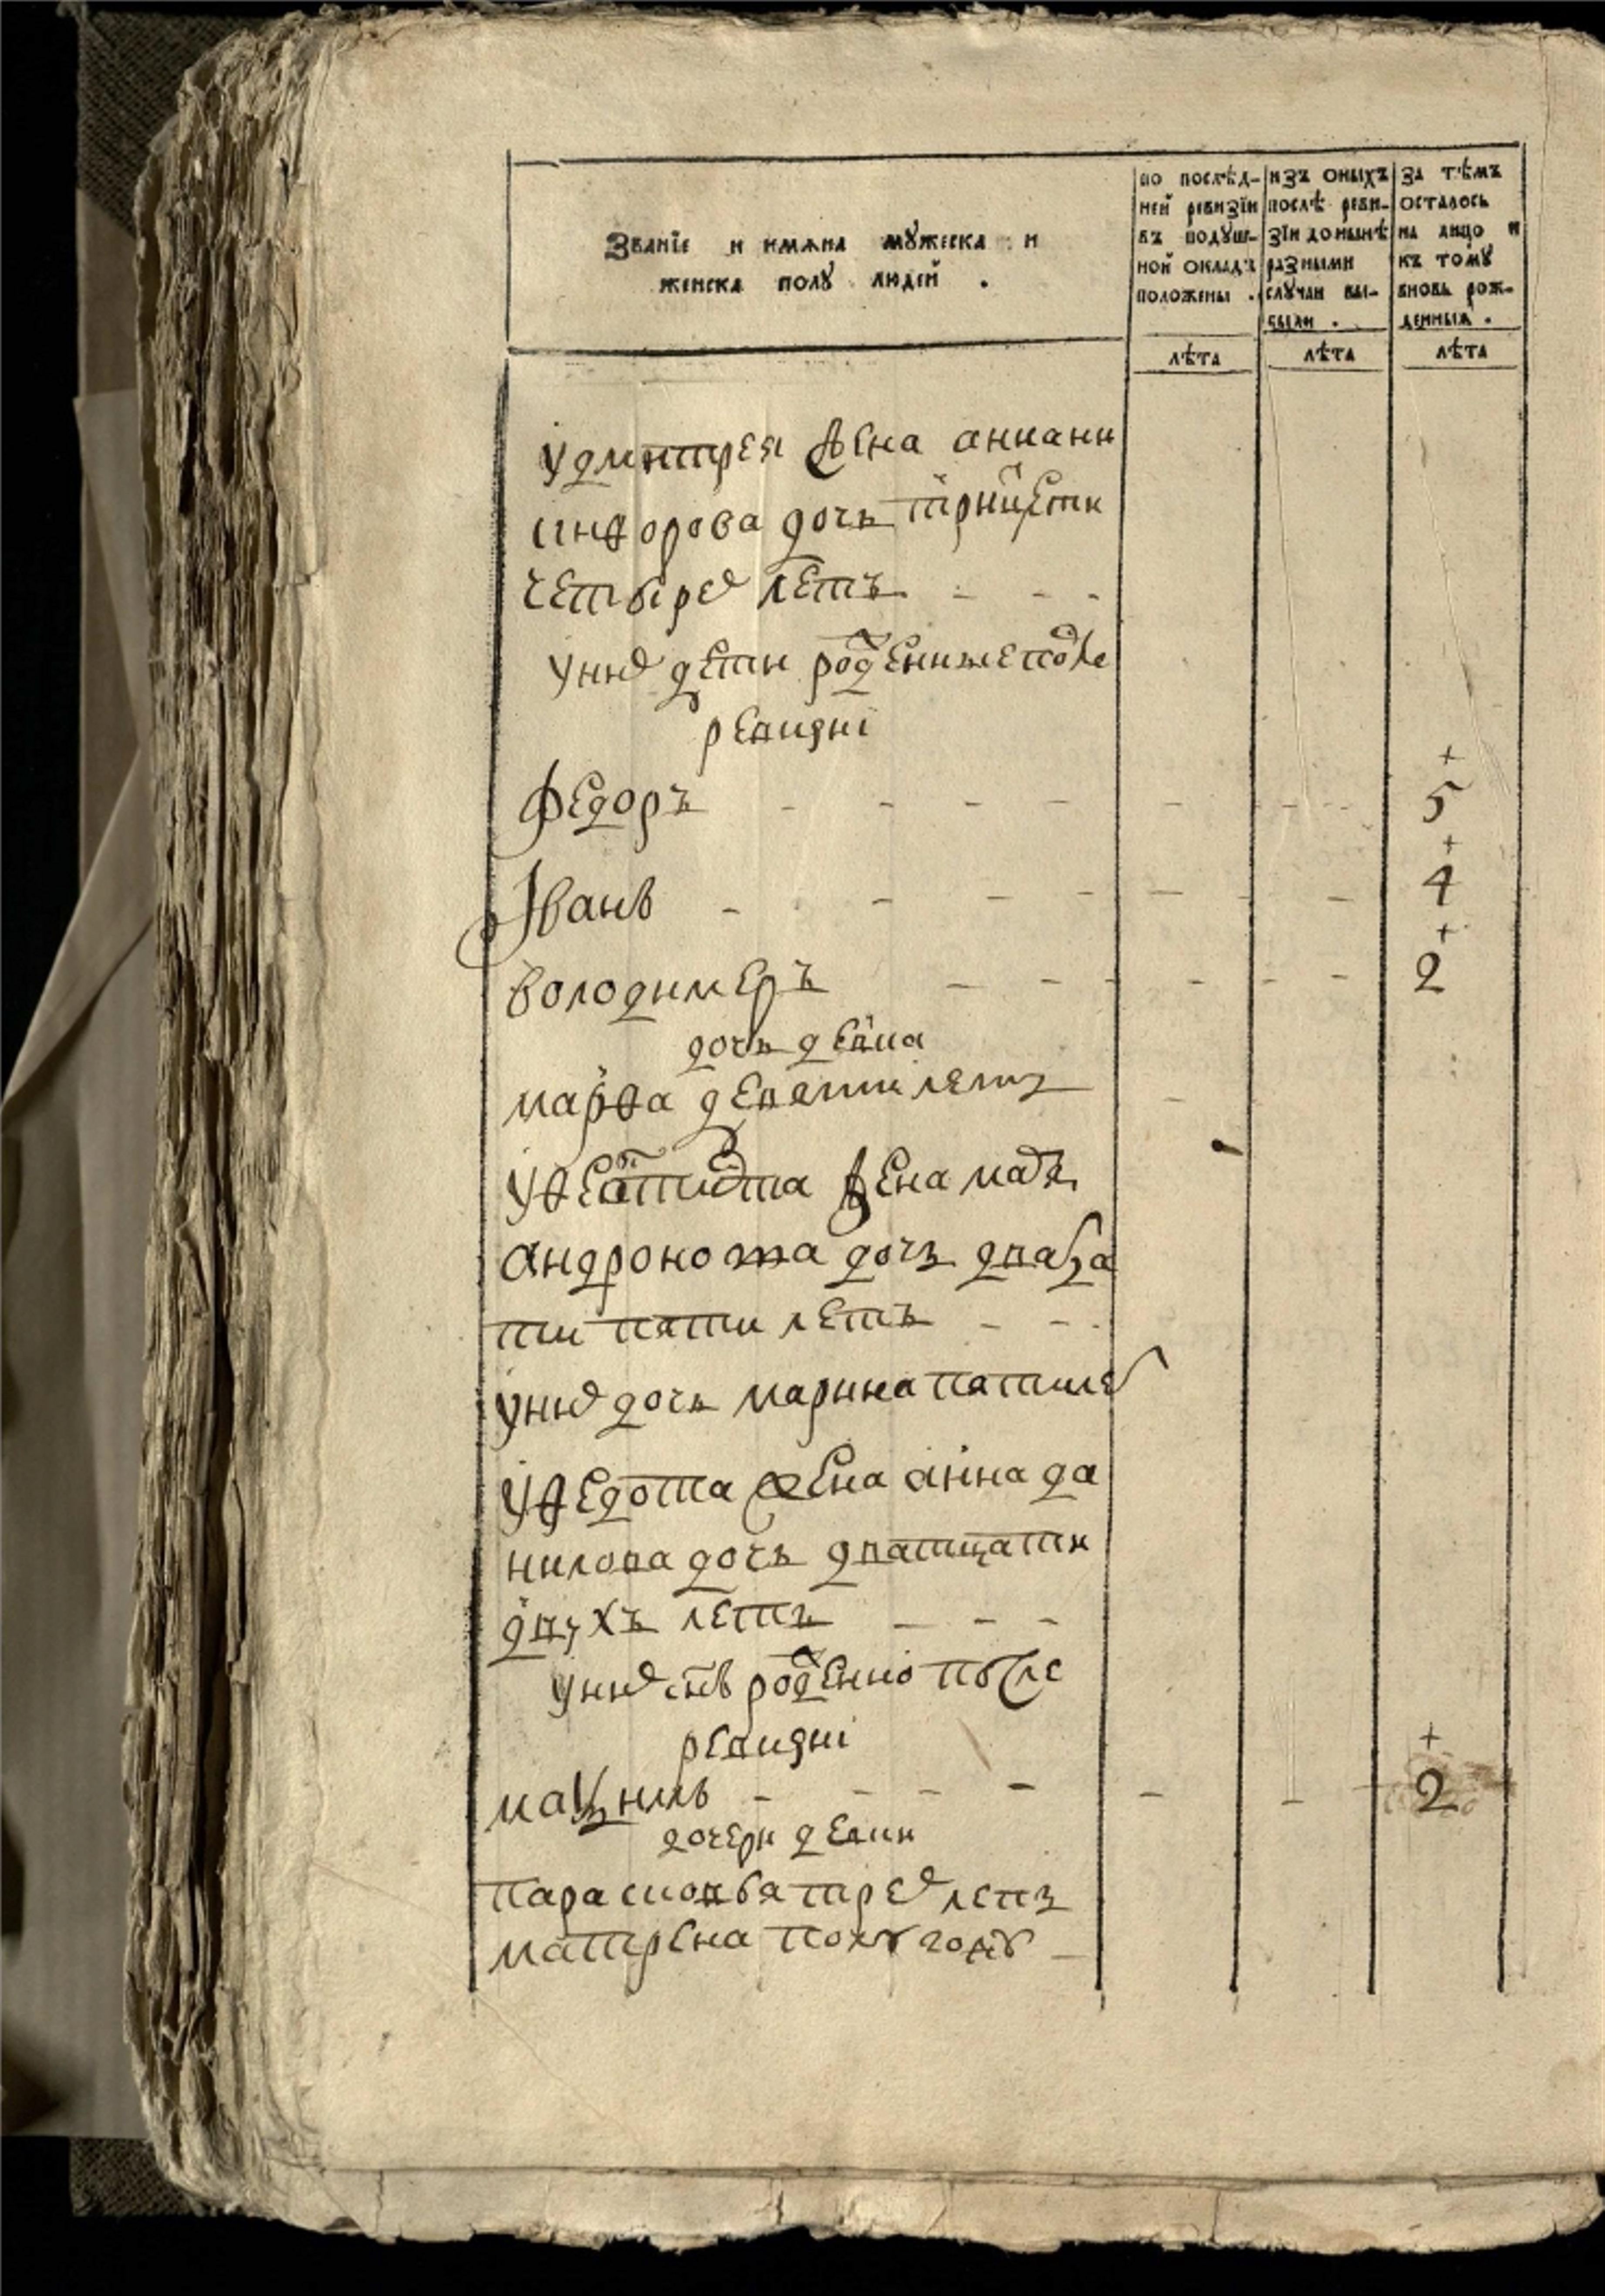 Званїе и имѧна мꙋжеска и
женска полꙋ людей .
по послѣд-
ней ревизїи
въ подꙋш-
ной окладъ
положены .
изъ оныхъ
послѣ реви-
зїи донынѣ
разными
слꙋчаи вы-
были .
за тѣмъ
осталось
на лицо и
къ томꙋ
вновь рож-
денныѧ .
лѣта
лѣта
лѣта
у дмитрея жена
сидорова дочь трицети
четырех летъ
у них дети рожденные после
ревизиі
Федоръ 5
Іванъ 4
володимеръ 2
дочь девка
марѳа девяти летъ
жена
андронова дочь двадца
ти пяти летъ
у них дочь марина пяти ле
у ѳедота жена анна да
нилова дочь дватцати
двухъ летъ
у них снъ рожденно после
ревизиі
2
дочери девки
парасковья трех летъ
матрена полу году